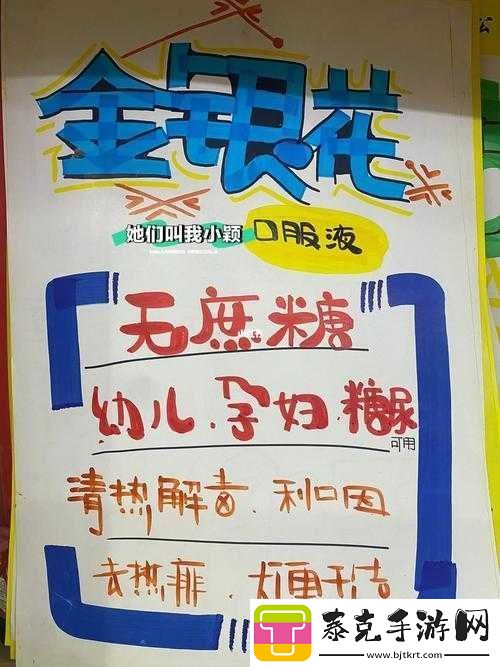 金银花
她们叫我小颖 口服液
无庶糖
幼儿.孕妇.糖尿
可用
清热解毒.利咽
去热痱.大便干结
泰克手游网
www.bjtkrt.com